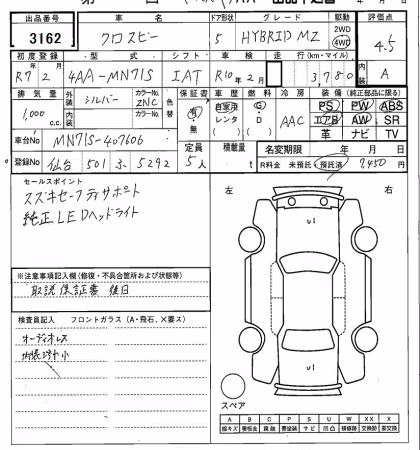 出品番号 車名 ドア形状 グレード 駆動 評価点
3162 クロスビー 5 HYBRID MZ 2WD 4WD 4.5
初度登録 型式 シフト 車検 走行(km・マイル) 内装
R7 2月 4AA-MN71S IAT R10年2月 3,780 A
排気量 外装 シルバー カラーNo. ZNC 色替 保証書 車歴 燃料 冷房 装備(純正部品に限る)
1,000 c.c. 内装 カラーNo. 有・無 自家用 レンタ ( ) G・D ( ) AAC PS PW ABS
エアB AW SR
革 ナビ TV
車台No MN71S-407606 定員 積載量 名変期限 年 月 日
登録No 仙台 501 ス 5292 5人 t R料金 未預託 預託済 7,450円
セールスポイント
スズキセーフティサポート
純正LEDヘッドライト
左 右
U1
U1
※注意事項記入欄(修復・不具合箇所および状態等)
取説 保証書 後日
検査員記入 フロントガラス(A・飛石、X要ス)
オーディオレス
内張ヨゴレ小
スペア
A B C P S U W X XX